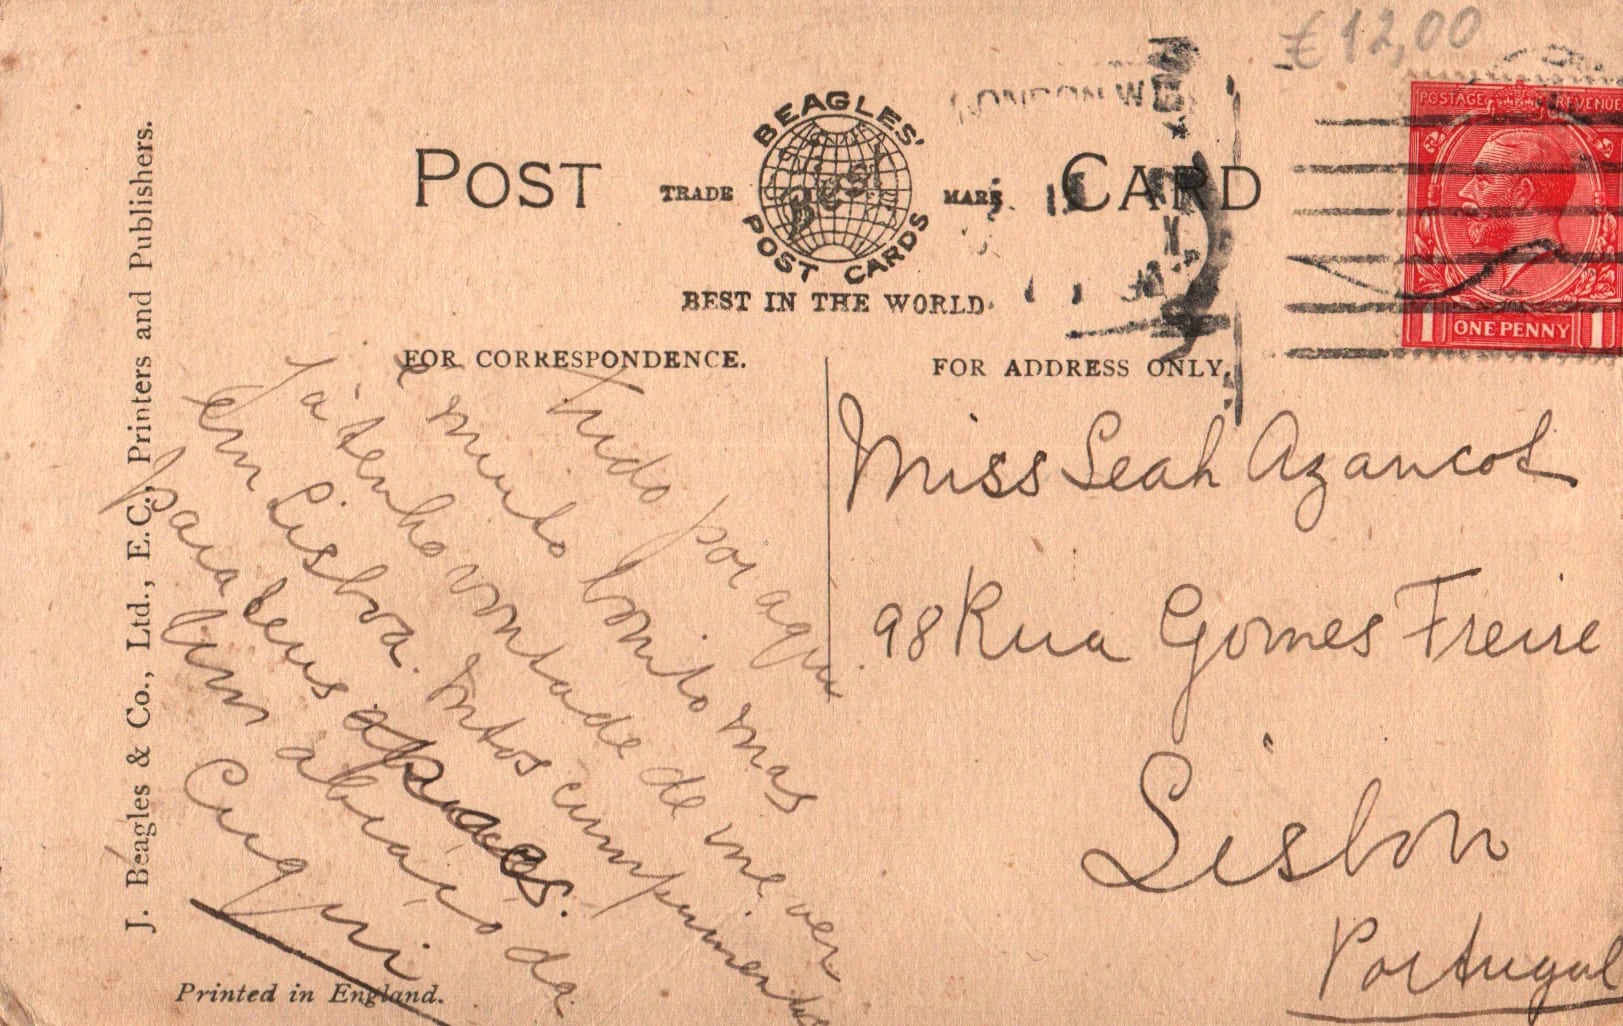 €12,00
LONDON W
POSTAGE REVENUE
ONE PENNY
1 1
POST CARD
TRADE MARK
BEAGLES'
Best
POST CARDS
BEST IN THE WORLD
FOR CORRESPONDENCE.
FOR ADDRESS ONLY.
Tudo por aqui
é muito bonito mas
já tenho vontade de me ver
em Lisboa. Mtos cumprimentos
para teus
um abraço da
Cuqui
Miss Leah Azancot
98 Rua Gomes Freire
Lisbon
Portugal
J. Beagles & Co., Ltd., E.C., Printers and Publishers.
Printed in England.